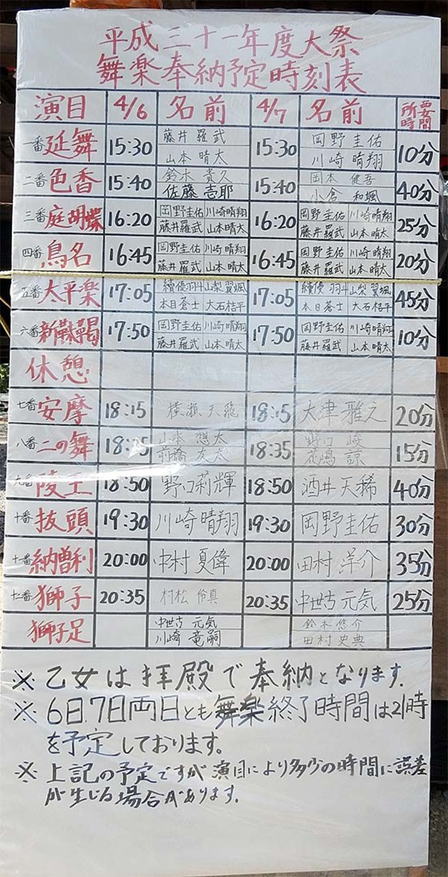 平成三十一年度大祭
舞楽奉納予定時刻表
演目 4/6 名前 4/7 名前 所要時間
一番 延舞 15:30 藤井羅武 山本晴太 15:30 岡野圭佑 川崎晴翔 10分
二番 色香 15:40 鈴木 佐藤 15:40 岡本 小倉 和楓 40分
三番 庭胡蝶 16:20 岡野圭佑 川崎晴翔 藤井羅武 山本晴太 16:20 岡野圭佑 川崎晴翔 藤井羅武 山本晴太 25分
四番 鳥名 16:45 岡野圭佑 川崎晴翔 藤井羅武 山本晴太 16:45 岡野圭佑 川崎晴翔 藤井羅武 山本晴太 20分
五番 太平楽 17:05 大石 17:05 大石 45分
六番 新靺鞨 17:50 岡野圭佑 川崎晴翔 藤井羅武 山本晴太 17:50 岡野圭佑 川崎晴翔 藤井羅武 山本晴太 10分
休憩
七番 安摩 18:15 18:15 大津雅之 20分
八番 二の舞 18:35 山本 友太 18:35 野口 諒 15分
九番 陵王 18:50 野口莉輝 18:50 酒井天稀 40分
十番 抜頭 19:30 川崎晴翔 19:30 岡野圭佑 30分
十一番 納曽利 20:00 中村夏偉 20:00 田村洋介 35分
十二番 獅子 20:35 村松 20:35 中世古 元気 25分
獅子足 中世古 元気 川崎 鈴木悠介 田村史典
※ 乙女は拝殿で奉納となります。
※ 6日、7日両日とも舞楽終了時間は21時
を予定しております。
※ 上記の予定ですが演目により多少の時間に誤差
が生じる場合があります。